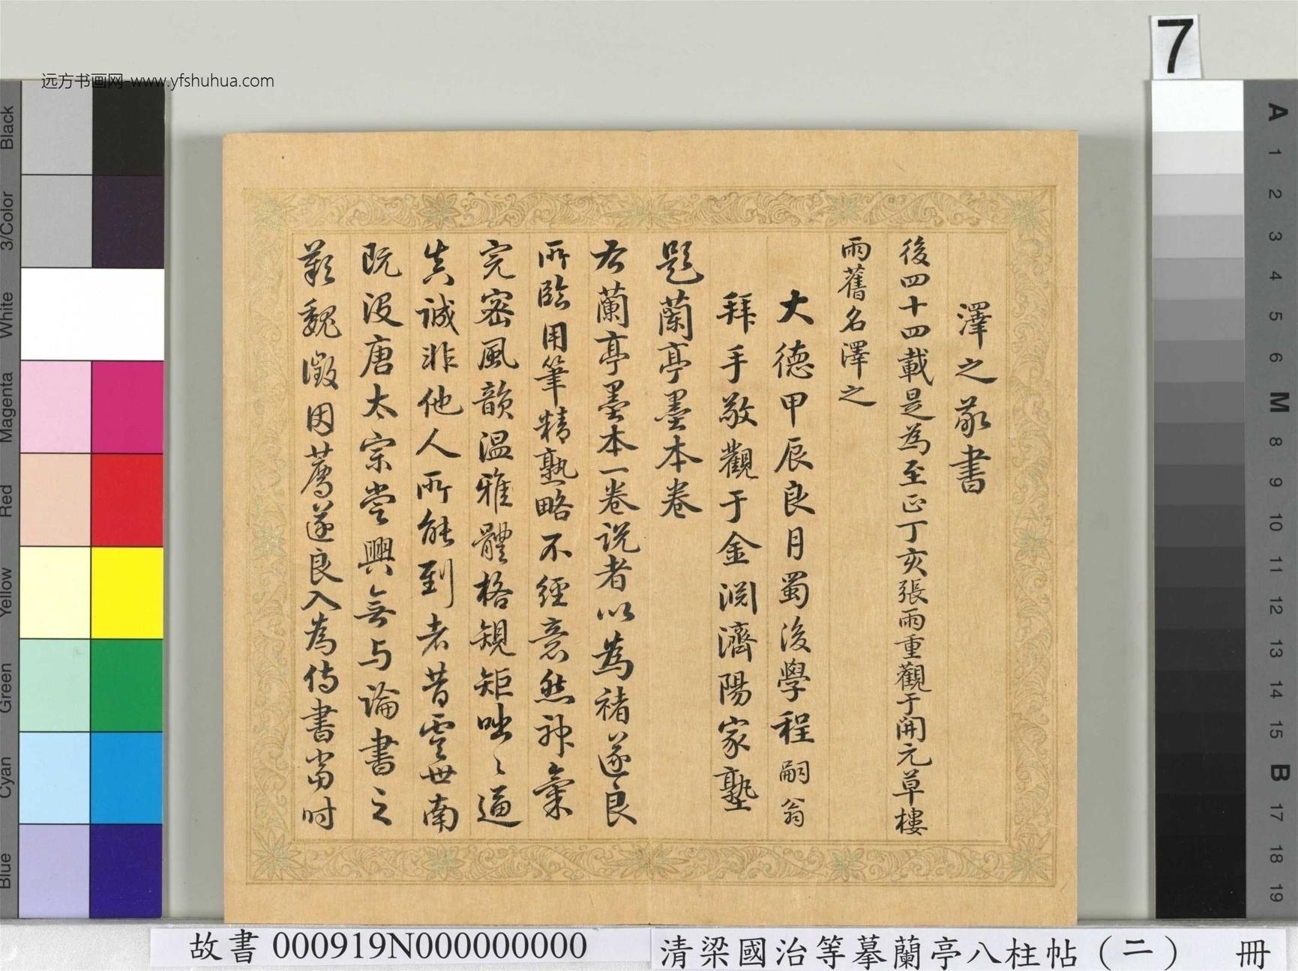 远方书画网-www.yfshuhua.com
7
澤之敬書
後四十四載是為至正丁亥張雨重觀于開元草樓
雨舊名澤之
大德甲辰良月蜀後學程嗣翁
拜手敬觀于金淵濟陽家塾
題蘭亭墨本卷
右蘭亭墨本一卷说者以為褚遂良
所臨用筆精熟略不經意然神氣
完密風韻溫雅體格規矩咄〻逼
真誠非他人所能到者昔虞世南
既没唐太宗嘗興無与論書之
歎魏徵因薦遂良入為侍書當时
Black
3/Color
White
Magenta
Red
Yellow
Green
Cyan
Blue
A
1
2
3
4
5
6
M
8
9
10
11
12
13
14
15
B
17
18
19
故書 000919N000000000
清梁國治等摹蘭亭八柱帖（二） 冊